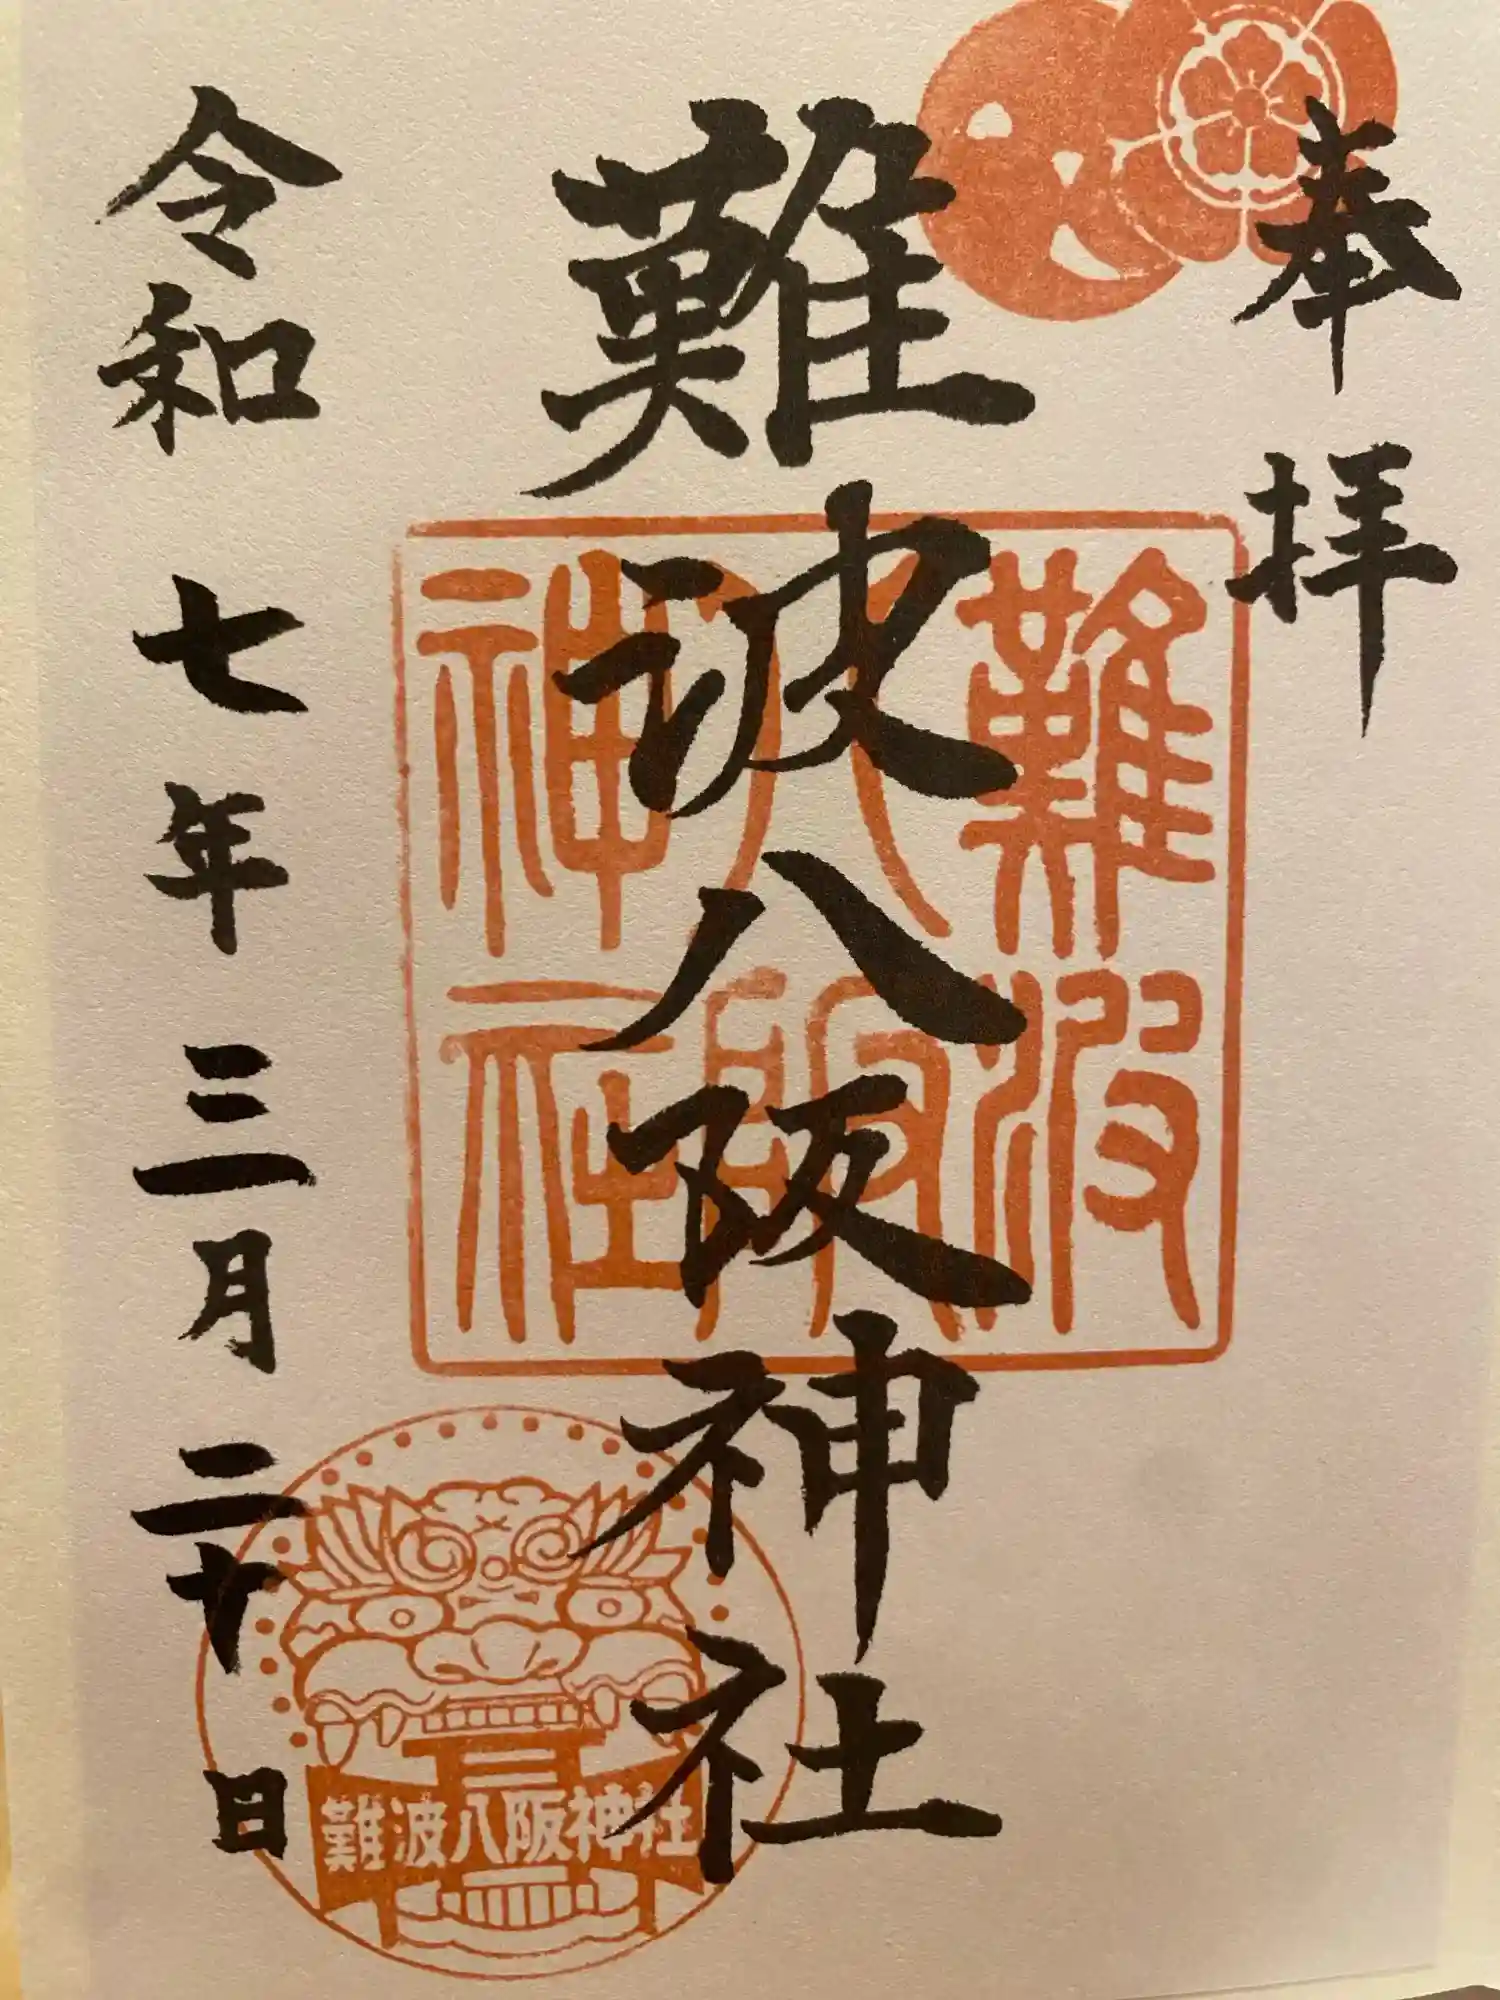 奉拝
難波八阪神社
難波
八阪
神社
令和七年三月二十日
難波八阪神社